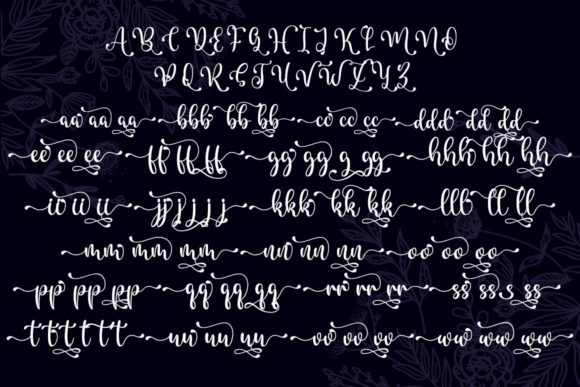 A B C D E F G H I J K L M N O
P Q R S T U V W X Y Z
aa aa aa bbb bb bb cc cc cc ddd dd dd
ee ee ee ff ff ff gg gg g gg hhh hh hh
ii ii ii jj j j j j kkk kk kk lll ll ll
mm mm mm nn nn nn oo oo oo
pp pp pp qq qq qq rr rr rr ss ss s ss
tt tt tt uu uu uu vv vv vv ww ww ww